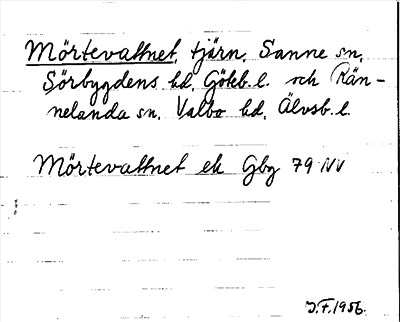 Mörtevattnet, tjärn, Sanne sn,
Sörbygdens hd, Göteb. l. och Rän-
nelanda sn, Valbo hd, Älvsb. l.
Mörtevattnet ek Gbg 79 NV
J.F. 1956.